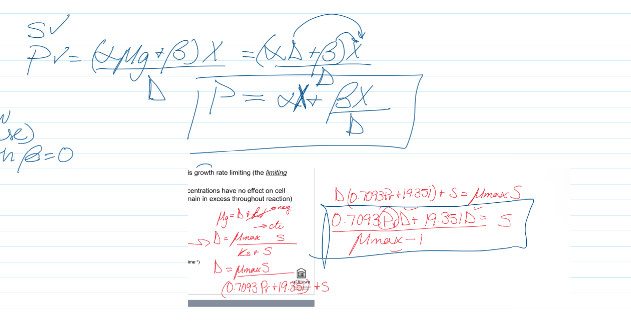 S✓
P✓ = (αμg+β)X / D = (αD+β)X / D
P = αX + βX / D
se)
n β=0
is growth rate limiting (the limiting
centrations have no effect on cell
main in excess throughout reaction)
μg = D + kd → neg
D = μmax S / Ks + S
D = μmax S / (0.7093 Pr + 19.351) + S
D(0.7093Pr+19.351) + S = μmax S
0.7093 Pr D + 19.351D = S
μmax - 1